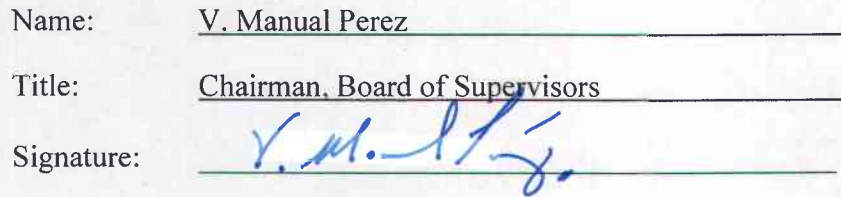 Name: V. Manual Perez
Title: Chairman, Board of Supervisors
Signature: V. Manual Perez